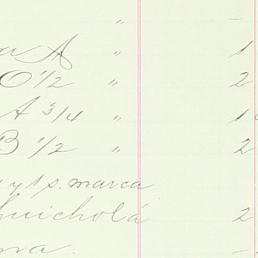 " -
A " 1
O 1/2 " 2
A 3/4 " 1
B 1/2 " 2
y 1 p. marca
huichola 2